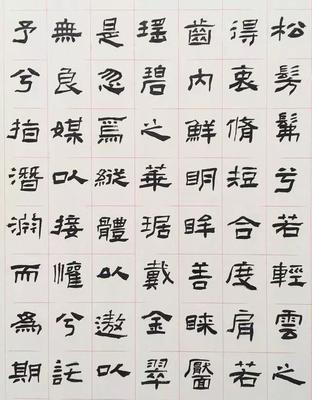 松髣髴兮若輕雲之
得衷脩短合度肩若
齒內鮮明眸善睞靨
瑤碧之華琚戴金翠
是忽焉縱體以遨以
無良媒以接懽兮託
予兮指潛淵而為期